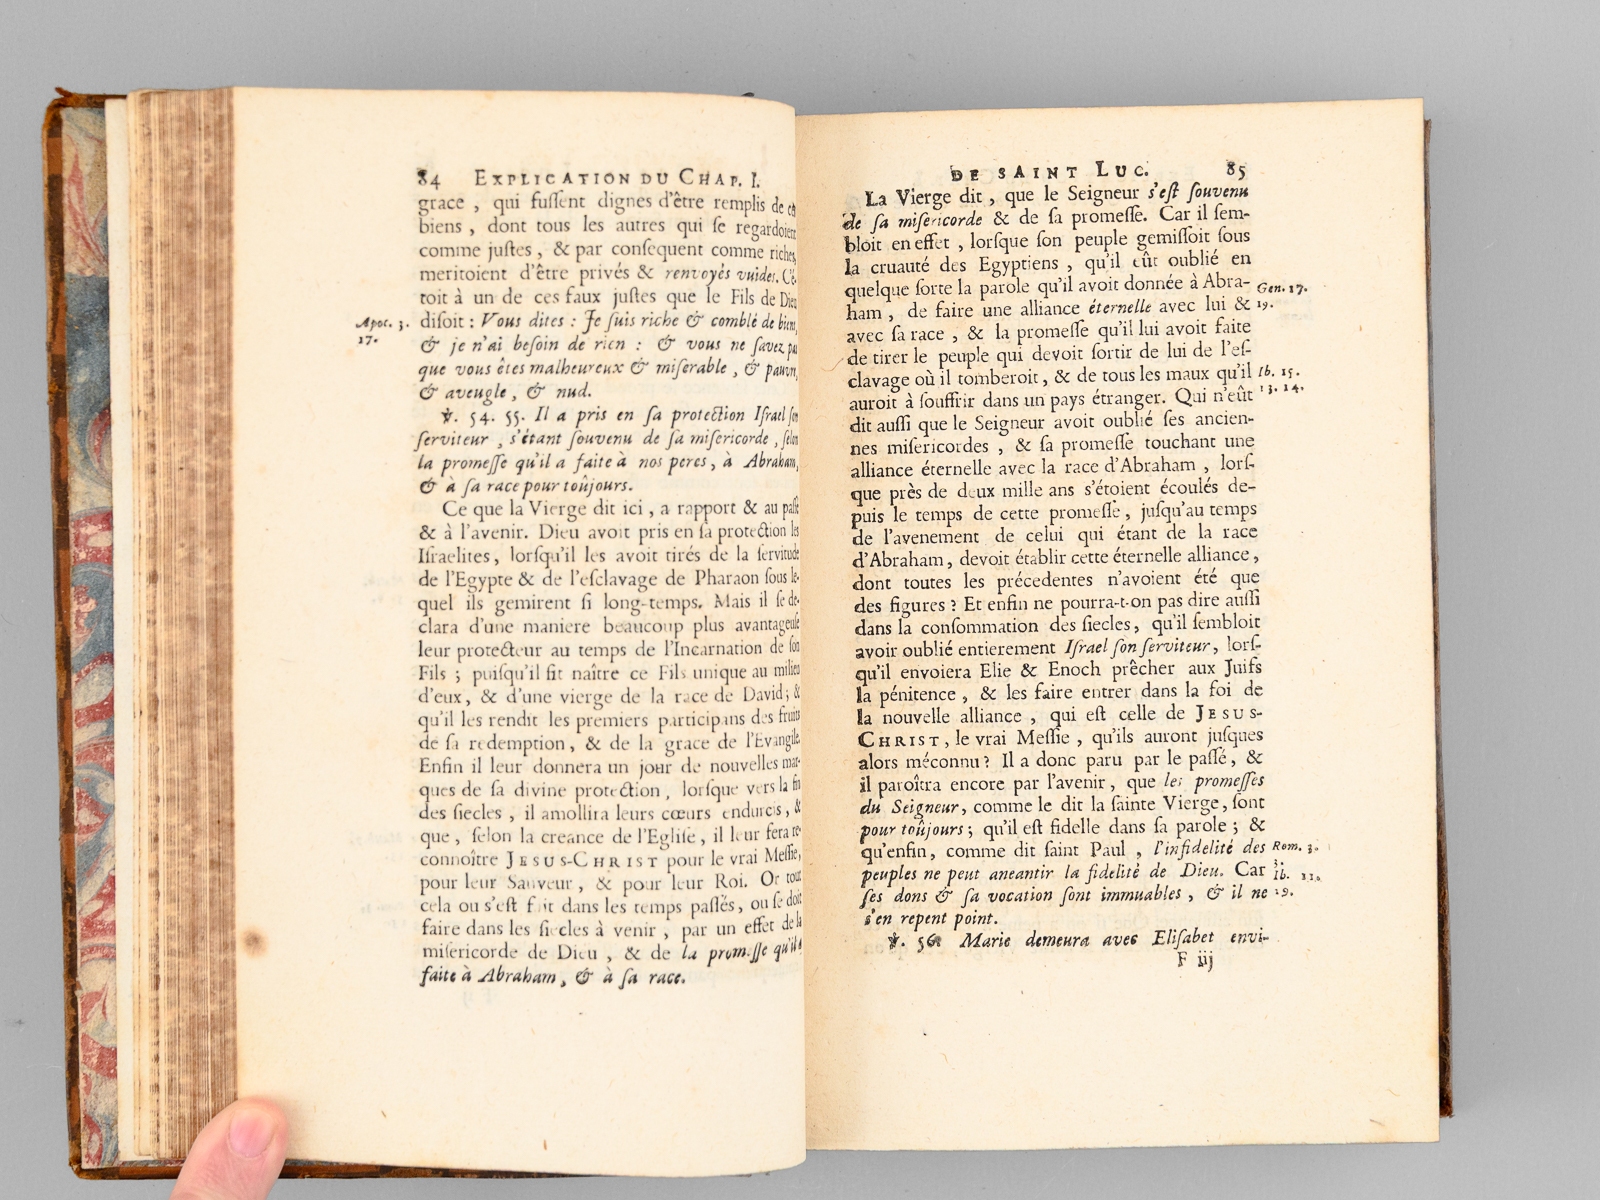 84 EXPLICATION DU CHAP. I.
grace , qui fuſſent dignes d'être remplis de ces
biens , dont tous les autres qui ſe regardoient
comme juſtes , & par conſequent comme riches,
meritoient d'être privés & renvoyés vuides. C'é-
toit à un de ces faux juſtes que le Fils de Dieu
Apoc. 3. 17.
diſoit : Vous dites : Je ſuis riche & comblé de biens,
& je n'ai beſoin de rien : & vous ne ſavez pas
que vous êtes malheureux & miſerable , & pauvre,
& aveugle , & nud.
℣. 54. 55. Il a pris en ſa protection Iſrael ſon
ſerviteur , s'étant ſouvenu de ſa miſericorde , ſelon
la promeſſe qu'il a faite à nos peres, à Abraham,
& à ſa race pour toûjours.
Ce que la Vierge dit ici , a rapport & au paſſé
& à l'avenir. Dieu avoit pris en ſa protection les
Iſraelites, lorſqu'il les avoit tirés de la ſervitude
de l'Egypte & de l'eſclavage de Pharaon ſous le-
quel ils gemirent ſi long-temps. Mais il ſe de-
clara d'une maniere beaucoup plus avantageuſe
leur protecteur au temps de l'Incarnation de ſon
Fils ; puiſqu'il fit naître ce Fils unique au milieu
d'eux, & d'une vierge de la race de David; &
qu'il les rendit les premiers participans des fruits
de ſa redemption, & de la grace de l'Evangile.
Enfin il leur donnera un jour de nouvelles mar-
ques de ſa divine protection, lorſque vers la fin
des ſiecles , il amollira leurs cœurs endurcis, &
que, ſelon la creance de l'Egliſe, il leur fera re-
connoître JESUS-CHRIST pour le vrai Meſſie,
pour leur Sauveur, & pour leur Roi. Or tout
cela ou s'eſt fait dans les temps paſſés, ou ſe doit
faire dans les ſiecles à venir , par un effet de la
miſericorde de Dieu , & de la promeſſe qu'il a
faite à Abraham, & à ſa race.
DE SAINT LUC. 85
La Vierge dit , que le Seigneur s'eſt ſouvenu
de ſa miſericorde & de ſa promeſſe. Car il ſem-
bloit en effet , lorſque ſon peuple gemiſſoit ſous
la cruauté des Egyptiens , qu'il eût oublié en
quelque ſorte la parole qu'il avoit donnée à Abra-
Gen. 17. 19.
ham, de faire une alliance éternelle avec lui &
avec ſa race , & la promeſſe qu'il lui avoit faite
de tirer le peuple qui devoit ſortir de lui de l'eſ-
clavage où il tomberoit, & de tous les maux qu'il
Ib. 15. 13. 14.
auroit à ſouffrir dans un pays étranger. Qui n'eût
dit auſſi que le Seigneur avoit oublié ſes ancien-
nes miſericordes , & ſa promeſſe touchant une
alliance éternelle avec la race d'Abraham , lorſ-
que près de deux mille ans s'étoient écoulés de-
puis le temps de cette promeſſe, juſqu'au temps
de l'avenement de celui qui étant de la race
d'Abraham, devoit établir cette éternelle alliance,
dont toutes les précedentes n'avoient été que
des figures ? Et enfin ne pourra-t-on pas dire auſſi
dans la conſommation des ſiecles, qu'il ſembloit
avoir oublié entierement Iſrael ſon ſerviteur, lorſ-
qu'il envoiera Elie & Enoch prêcher aux Juifs
la pénitence , & les faire entrer dans la foi de
la nouvelle alliance , qui eſt celle de JESUS-
CHRIST, le vrai Meſſie , qu'ils auront juſques
alors méconnu ? Il a donc paru par le paſſé, &
il paroîtra encore par l'avenir, que les promeſſes
du Seigneur, comme le dit la ſainte Vierge, ſont
pour toûjours ; qu'il eſt fidelle dans ſa parole ; &
qu'enfin, comme dit ſaint Paul , l'infidelité des
Rom. 3. 3.
peuples ne peut aneantir la fidelité de Dieu. Car
Ib. 11. 29.
ſes dons & ſa vocation ſont immuables , & il ne
s'en repent point.
℣. 56. Marie demeura avec Eliſabet envi-
F iij